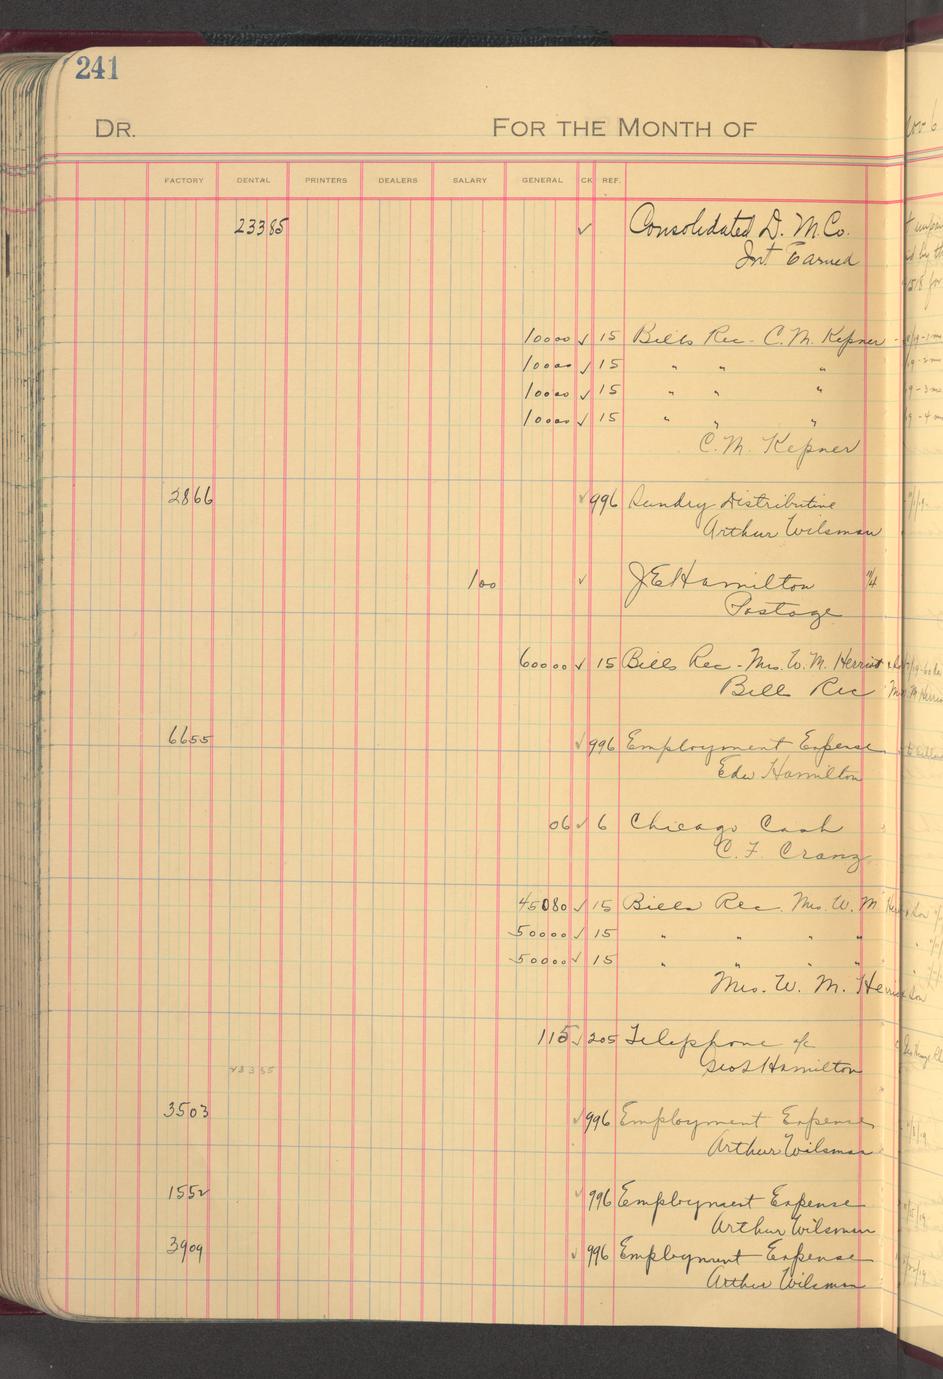 241
DR. FOR THE MONTH OF
FACTORY DENTAL PRINTERS DEALERS SALARY GENERAL CK REF.
23385 ✓ Consolidated D. M. Co.
Int Earned
10000 ✓ 15 Bills Rec - C. M. Kepner
10000 ✓ 15 " " "
10000 ✓ 15 " " "
10000 ✓ 15 " " "
C. M. Kepner
2866 ✓ 996 Sundry Distributive
Arthur Wilsman
100 ✓ J E Hamilton 11/4
Postage
60000 ✓ 15 Bills Rec - Mrs. W. M. Herriot
Bill Rec
6655 ✓ 996 Employment Expense
Edw Hamilton
06 ✓ 6 Chicago Cash
C. F. Cranz
45080 ✓ 15 Bills Rec. Mrs. W. M
50000 ✓ 15 " " " "
50000 ✓ 15 " " " "
Mrs. W. M. Herriot
115 ✓ 205 Telephone a/c
Geo S Hamilton
23385
3503 ✓ 996 Employment Expense
Arthur Wilsman
1552 ✓ 996 Employment Expense
Arthur Wilsman
3909 ✓ 996 Employment Expense
Arthur Wilsman